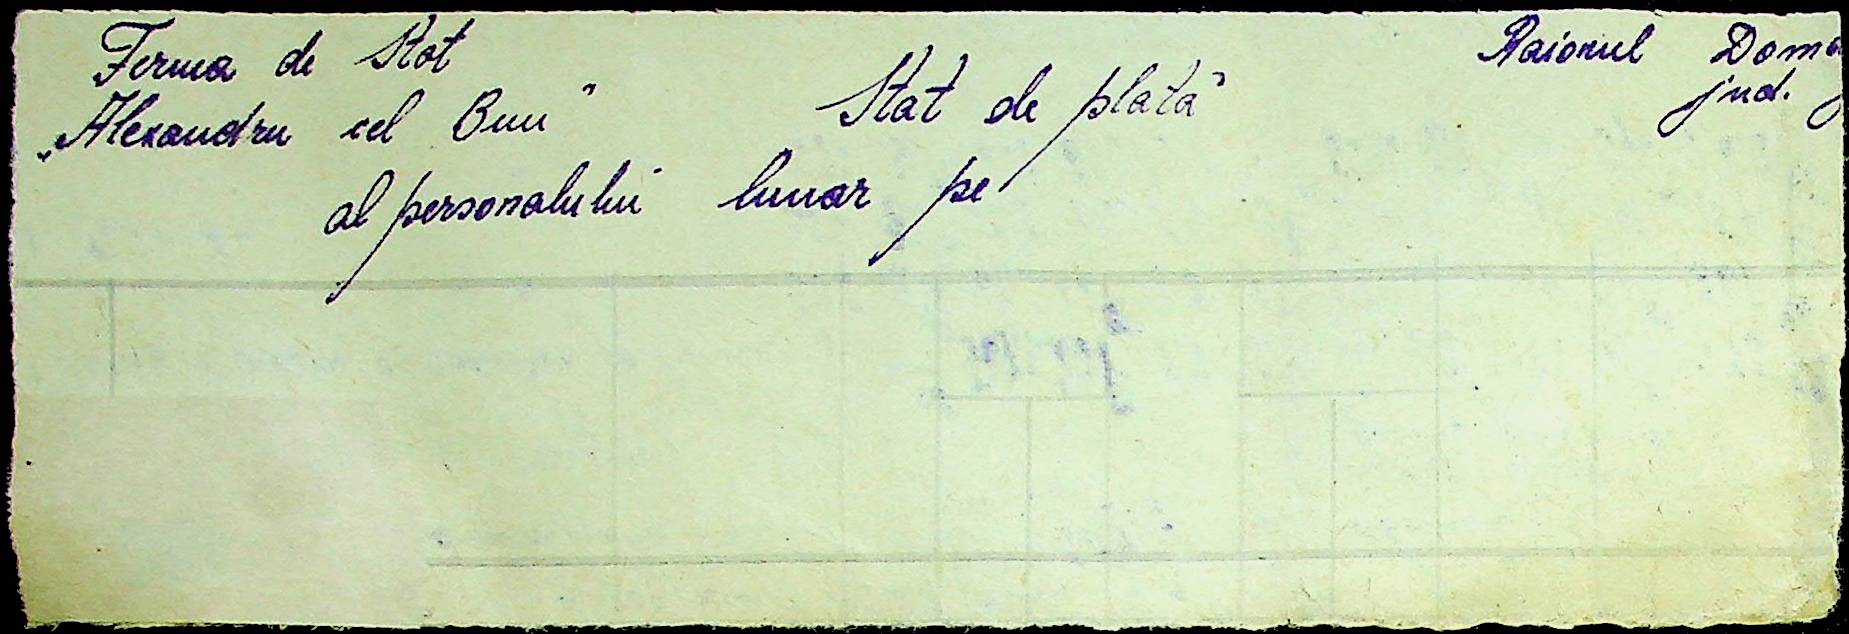 Ferma de Stat
„Alexandru cel Bun”
Stat de plată
al personalului lunar pe
Raionul
jud.